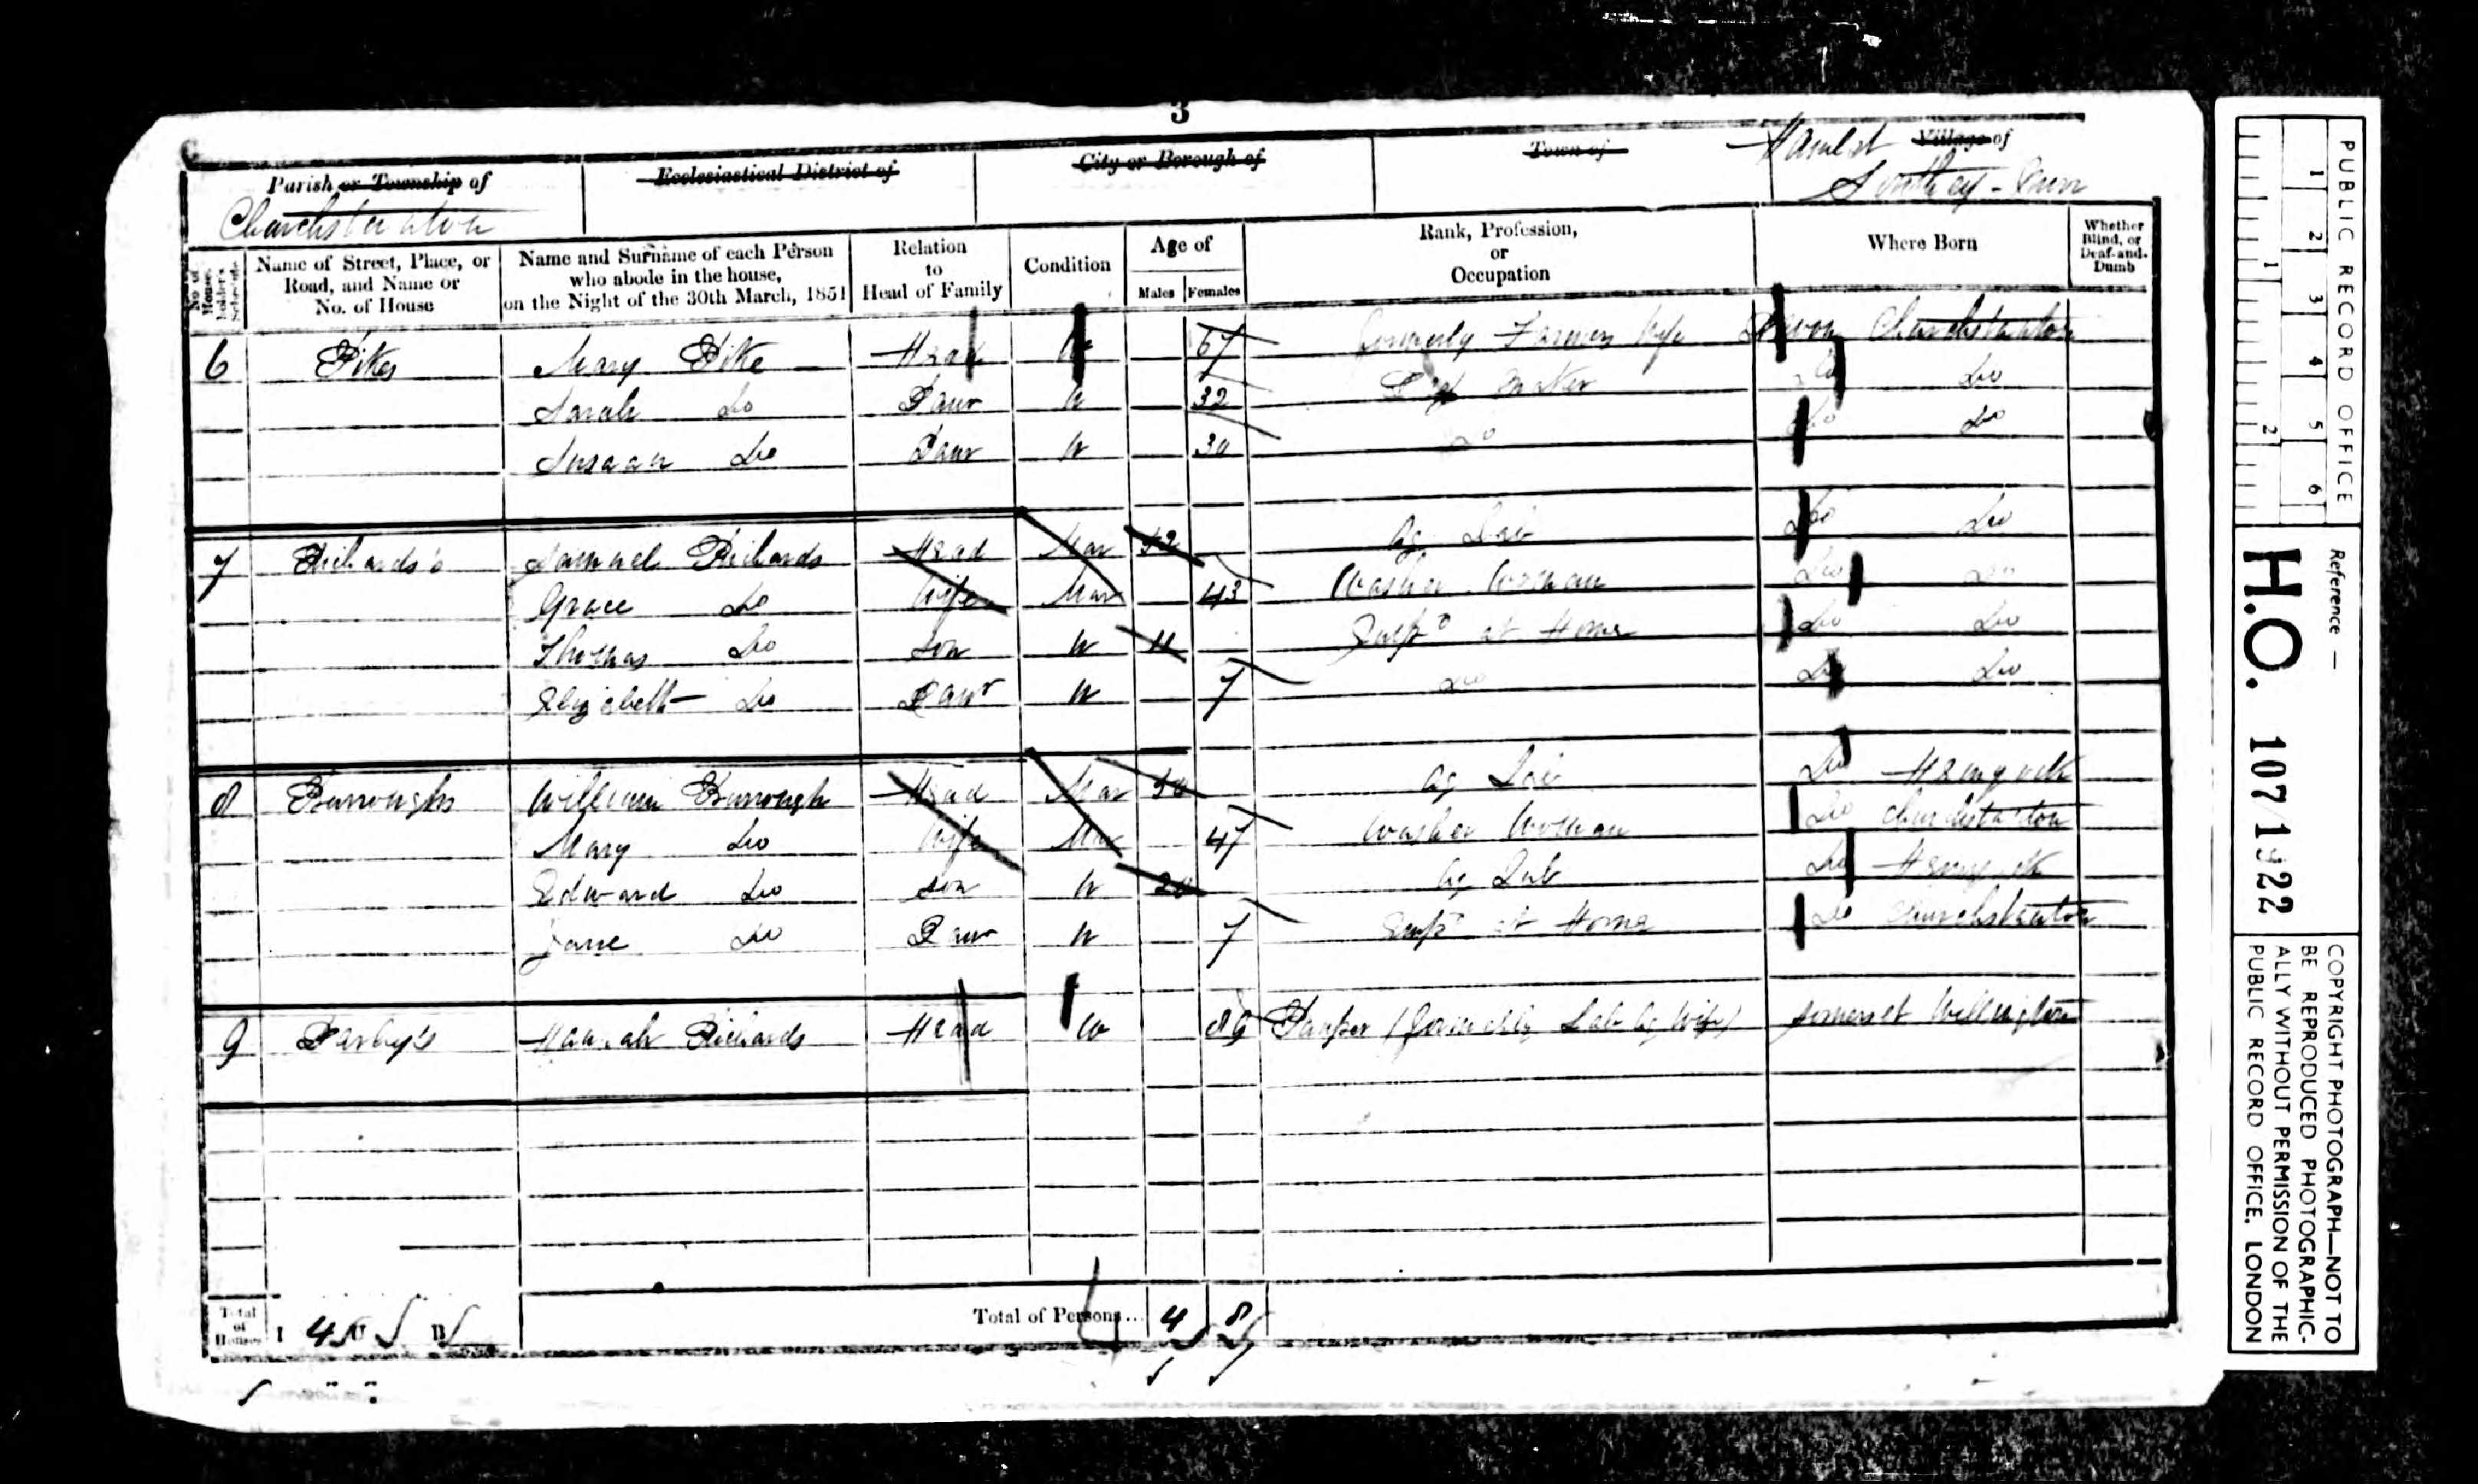 3
Parish or Township of
Ecclesiastical District of
City or Borough of
Town of
Hamlet Village of
Churchstanton
No. of House-holder's Schedule
Name of Street, Place, or Road, and Name or No. of House
Name and Surname of each Person who abode in the house, on the Night of the 30th March, 1851
Relation to Head of Family
Condition
Age of
Males
Females
Rank, Profession, or Occupation
Where Born
Whether Blind, or Deaf-and-Dumb
6 Pikes Mary Pike Head 67 formerly Farmers Wife Devon Churchstanton
Sarah Do Daur U 32 Maker Do Do
Susaan Do Daur U 30 Do Do Do
7 Richards's Samuel Richards Head Mar 52 Ag Lab Do Do
Grace Do Wife Mar 43 Washer Woman Do Do
Thomas Do Son U 11 at Home Do Do
Elizabeth Do Daur U 7 Do Do Do
8 Burroughs William Burrough Head Mar 50 Ag Lab Do Hemyock
Mary Do Wife Mar 47 Washer Woman Do Churchstanton
Edward Do Son U 20 Ag Lab Do Hemyock
Jane Do Daur U 7 at Home Do Churchstanton
9 Hannah Richards Head W 89 Pauper (formerly Wife) Somerset Wellington
Total of Houses
I 4 U B
Total of Persons... 4 8
PUBLIC RECORD OFFICE
1 2 3 4 5 6
1 2
Reference —
H.O. 107/1922
COPYRIGHT PHOTOGRAPH—NOT TO
BE REPRODUCED PHOTOGRAPHIC-
ALLY WITHOUT PERMISSION OF THE
PUBLIC RECORD OFFICE. LONDON